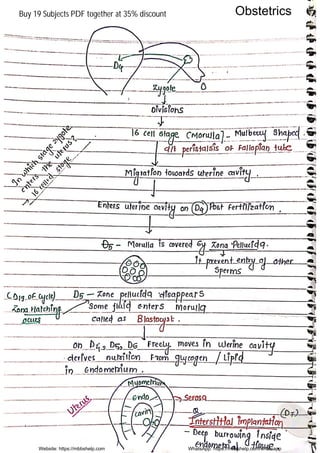 Buy 19 Subjects PDF together at 35% discount
Obstetrics
D4
Zygote
O
Divisions
16 cell stage [Morulla] - Mulberry Shaped
d/t peristalsis of Fallopian tube
In which stage zygote
enters the uterus?
→ 16 celled stage
Migration towards uterine cavity.
Enters uterine cavity on (D4) Post Fertilization.
D5 - Morulla is covered by Zona Pellucida.
It prevent entry of other
Sperms
(D19 of cycle)
D5 - Zone pellucida disappears
Zona Hatching
occurs
Some fluid enters morulla
called as Blastocyst.
on D4, D5, D6 Freely moves in uterine cavity
derives nutrition From glycogen / Lipid
in Endometrium.
Myometrium
Uterus
Endo
cavity
Serosa
Interstitial implantation
- Deep burrowing inside
endometrial tissue
Website: https://mbbshelp.com
WhatsApp: https://mbbshelp.com/whatsapp